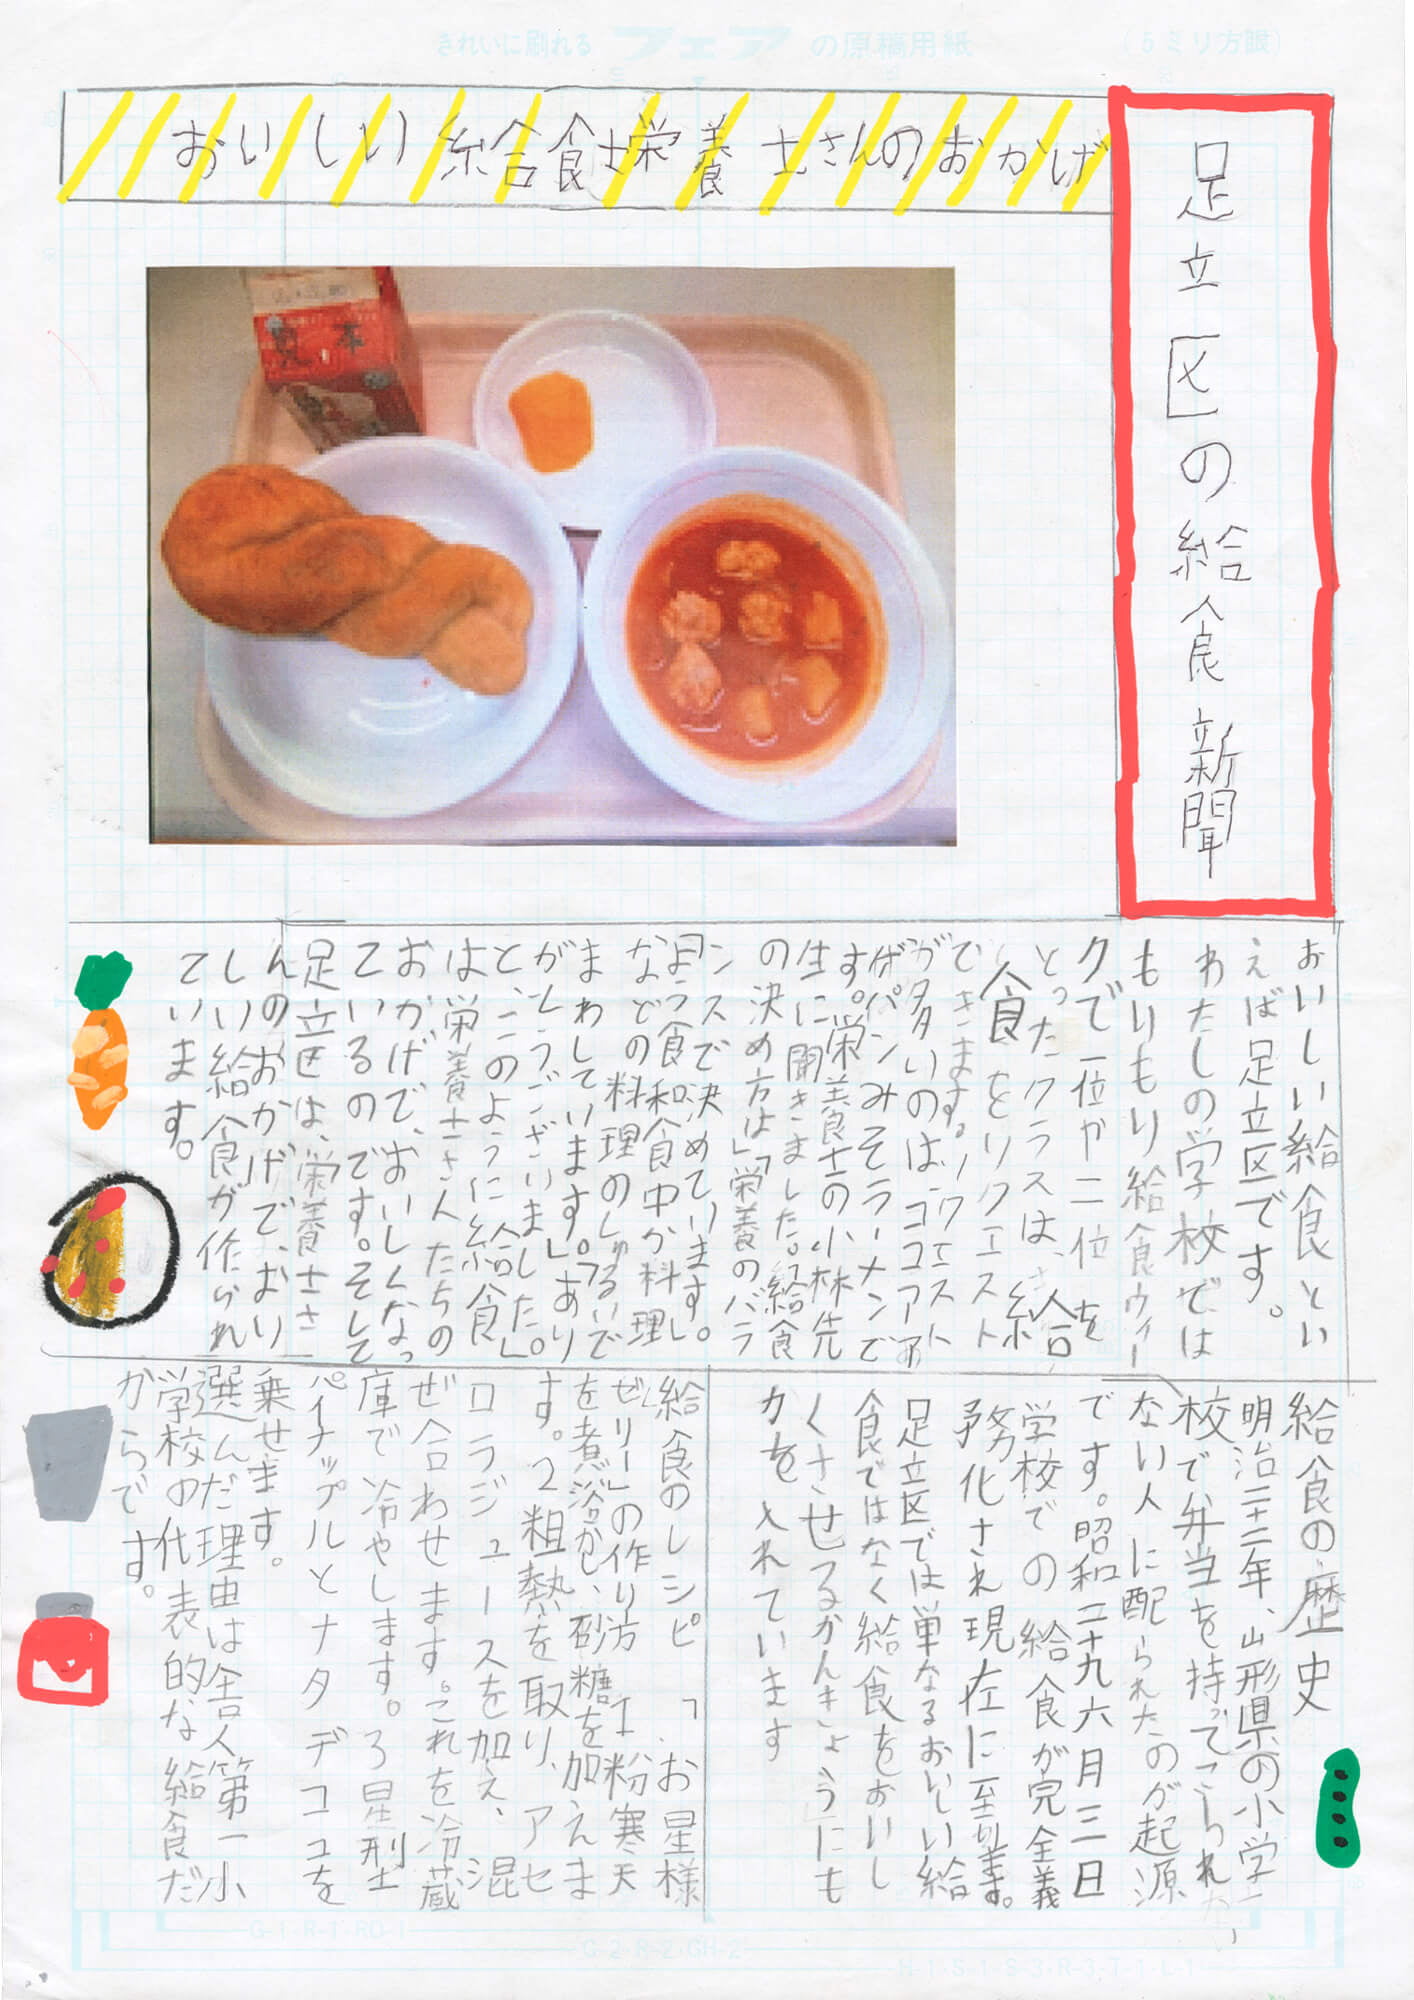 きれいに刷れる フェア の原稿用紙 (5ミリ方眼)
足立区の給食新聞
おいしい給食栄養士さんのおかげ
見本
おいしい給食とい
えば足立区です。
わたしの学校では
もりもり給食ウィー
クで一位や二位を
とったクラスは、給
食をリクエスト
できます。リクエスト
が多いのは、ココアあ
げパンみそラーメンで
す。栄養士の小林先
生に聞きました。「給食
の決め方は」「栄養のバラ
ンスで決めています。」
「よう食和食中か料理
などの料理のしゅるいで
まわしています。」「あり
がとうございました。」
と、このように給食
は栄養士さんたちの
おかげで、おいしくなっ
ているのです。そして
足立区は、栄養士さ
んのおかげで、おい
しい給食が作られ
ています。
給食の歴史
明治二十二年、山形県の小学
校で弁当を持ってこられ
ない人に配られたのが起源
です。昭和二十九六月三日
学校での給食が完全義
務化され現在に至ります。
足立区では単なるおいしい給
食ではなく給食をおいし
くさせるかんきょうにも
力を入れています
給食のレシピ 「お星様
ゼリー」の作り方 1粉寒天
を煮溶かし、砂糖を加えま
す。2粗熱を取り、アセ
ロラジュースを加え、混
ぜ合わせます。これを冷蔵
庫で冷やします。3星型
パイナップルとナタデココを
乗せます。
選んだ理由は舎人第一小
学校の代表的な給食だ
からです。
G-1・R-1・RO-1
G-2・R-2・GH-2